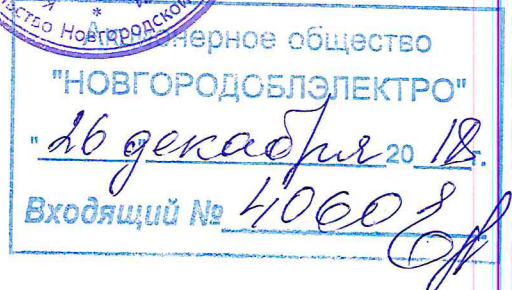 ство Новгородской
Акционерное общество
"НОВГОРОДОБЛЭЛЕКТРО"
"26" декабря 2018 г.
Входящий №